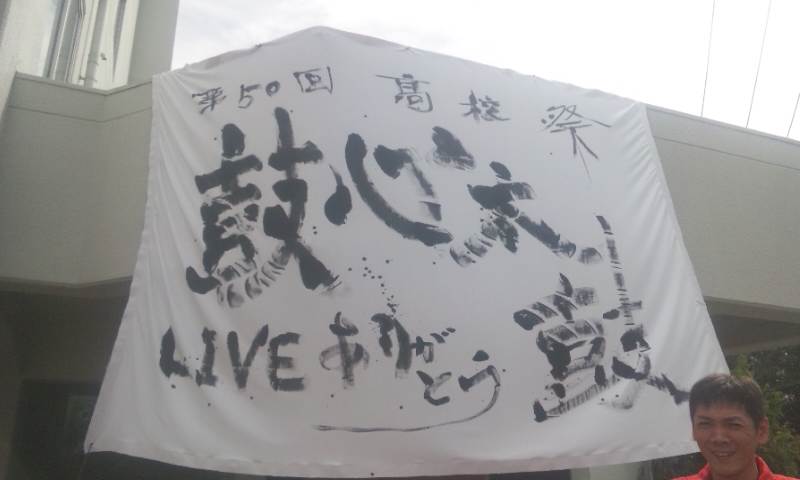 第50回 高校祭
鼓心太鼓
LIVEありがとう